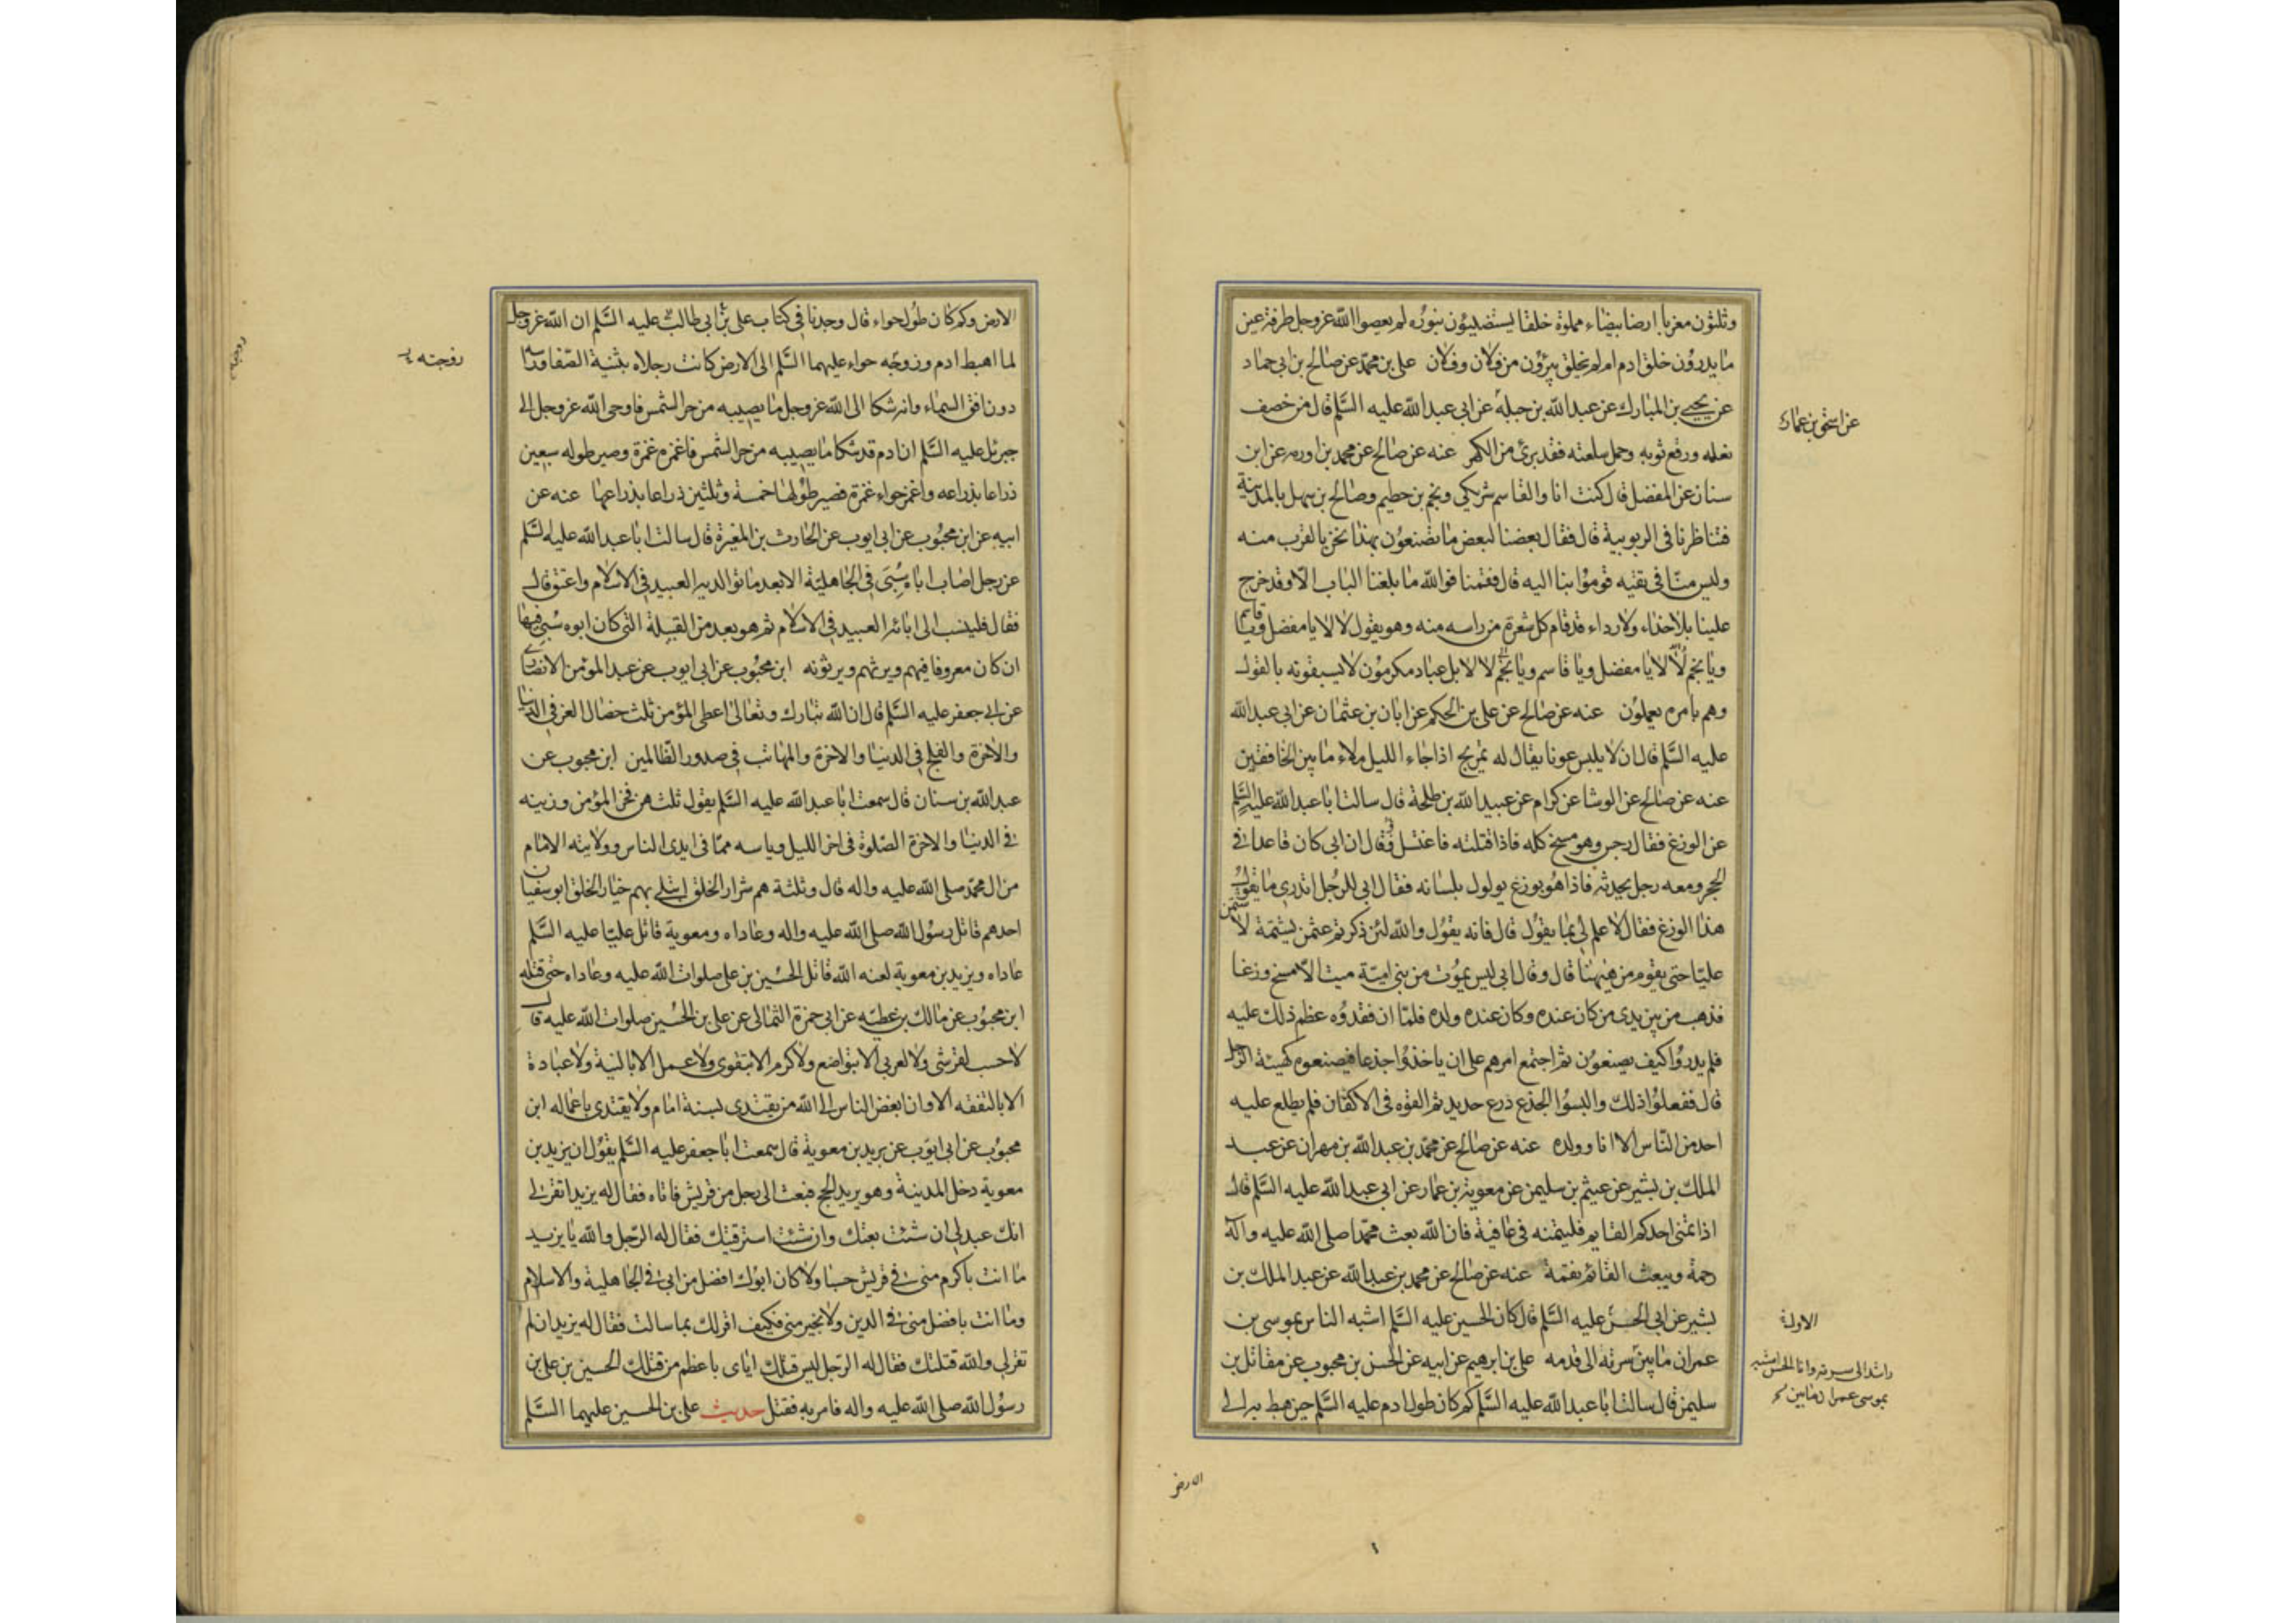 وثلثون مغربا ارضا بيضاء مملوة خلقا يستضيئون بنوره لم يعصوا الله عزوجل طرفة عين
ما يدرون خلق ادم ام لم يخلق يبرؤن من فلان وفلان على بن محمد عن صالح بن ابى حماد
عن يحيى بن المبارك عن عبدالله بن جبلة عن ابى عبدالله عليه السلم قال من خصف
عن اسحق بن عمار
نعله ورقع ثوبه وحمل سلعته فقد برئ من الكبر عنه عن صالح عن محمد بن اورمه عن ابن
سنان عن المفضل قال كنت انا والقاسم شريكى ونجم بن حطيم وصالح بن سهل بالمدينة
فتناظرنا فى الربوبية قال فقال بعضنا لبعض ما تصنعون بهذا نحن بالقرب منه
وليس منا فى تقيه قوموا بنا اليه قال فقمنا فوالله ما بلغنا الباب الا وقد خرج
علينا بلا حذاء ولا رداء قد قام كل شعرة من راسه منه وهو يقول لا لا يا مفضل ويا قاسم
ويا نجم لا لا يا مفضل ويا قاسم ويا نجم لا لا بل عباد مكرمون لا يسبقونه بالقول
وهم بامره يعملون عنه عن صالح عن على بن الحكم عن ابان بن عثمان عن ابى عبدالله
عليه السلم قال ان لابليس عونا يقال له تمريح اذا جاء الليل ملاء ما بين الخافقين
عنه عن صالح عن الوشا عن كرام عن عبيدالله بن طلحة قال سالت ابا عبدالله عليه السلم
عن الوزغ فقال رجس وهو مسخ كله فاذا قتلته فاغتسل فقال ان ابى كان قاعدا فى
الحجر ومعه رجل يحدثه فاذا هو بوزغ يولول بلسانه فقال ابى للرجل اتدرى ما يقول
هذا الوزغ فقال لا علم لى بما يقول قال فانه يقول والله لئن ذكرتم عثمن بشتمة لاشتمن
عليا حتى يقوم من هيهنا قال وقال ابى ليس يموت من بنى امية ميت الا مسخ وزغا
فذهب من بين يدى من كان عنده وكان عنده ولده فلما ان فقدوه عظم ذلك عليه
فلم يدروا كيف يصنعون ثم اجتمع امرهم على ان ياخذوا جذعا فيصنعوه كهيئة الرجل
قال ففعلوا ذلك والبسوا الجذع درع حديد ثم القوه فى الاكفان فلم يطلع عليه
احد من الناس الا انا وولده عنه عن صالح عن محمد بن عبدالله بن مهران عن عبد
الملك بن بشير عن عيثم بن سليمن عن معوية بن عمار عن ابى عبدالله عليه السلم قال
اذا تمنى احدكم القايم فليتمنه فى عافية فان الله بعث محمدا صلى الله عليه وآله
رحمة ويبعث القائم نقمة عنه عن صالح عن محمد بن عبدالله عن عبد الملك بن
بشير عن ابى الحسن عليه السلم قال كان الحسين عليه السلم اشبه الناس بموسى بن
عمران ما بين سرته الى قدمه على بن ابرهيم عن ابيه عن الحسن بن محبوب عن مقاتل بن
سليمن قال سالت ابا عبدالله عليه السلم كم كان طول ادم عليه السلم حين هبط به الى
بموسى عمران ما بين
الارض
الارض وكم كان طول حواء قال وجدنا فى كتاب على بن ابى طالب عليه السلم ان الله عزوجل
لما اهبط ادم وزوجه حواء عليهما السلم الى الارض كانت رجلاه بثنية الصفا وراسه
زوجته
دون افق السماء وانه شكا الى الله عزوجل ما يصيبه من حر الشمس فاوحى الله عزوجل الى
جبرئل عليه السلم ان ادم قد شكا ما يصيبه من حر الشمس فاغمزه غمزة وصير طوله سبعين
ذراعا بذراعه واغمز حواء غمزة فصير طولها خمسة وثلثين ذراعا بذراعها عنه عن
ابيه عن ابن محبوب عن ابى ايوب عن الحارث بن المغيرة قال سالت ابا عبدالله عليه السلم
عن رجل اصاب اباه سبى فى الجاهلية الا بعد ما توالد به العبيد فى الاسلام واعتق قال
فقال فلينسب الى ابائه العبيد فى الاسلام ثم هو يعد من القبيلة التى كان ابوه سبى فيها
ان كان معروفا فيهم ويرثهم ويرثونه ابن محبوب عن ابى ايوب عن عبد المومن الانصارى
عن ابى جعفر عليه السلم قال ان الله تبارك وتعالى اعطى المؤمن ثلث خصال العز فى الدنيا
والاخرة والفلج فى الدنيا والاخرة والمهابت فى صدور الظالمين ابن محبوب عن
عبدالله بن سنان قال سمعت ابا عبدالله عليه السلم يقول ثلث هن فخر المؤمن وزينه
فى الدنيا والاخرة الصلوة فى اخر الليل وياسه مما فى ايدى الناس وولايته الامام
من ال محمد صلى الله عليه واله قال وثلثة هم شرار الخلق ابتلى بهم خيار الخلق ابوسفيان
احدهم قاتل رسول الله صلى الله عليه واله وعاداه ومعوية قاتل عليا عليه السلم
عاداه ويزيد بن معوية لعنه الله قاتل الحسين بن على صلوات الله عليه وعاداه حتى قتله
ابن محبوب عن مالك بن عطيه عن ابى حمزة الثمالى عن على بن الحسين صلوات الله عليه قال
لا حسب لقرشى ولا لعربى الا بتواضع ولا كرم الا بتقوى ولا عمل الا بالنية ولا عبادة
الا بالتفقه الا وان ابغض الناس الى الله من يقتدى بسنة امام ولا يقتدى باعماله ابن
محبوب عن ابى ايوب عن بريد بن معوية قال سمعت ابا جعفر عليه السلم يقول ان يزيد بن
معوية دخل المدينة وهو يريد الحج فبعث الى رجل من قريش فاتاه فقال له يزيد اتقر لى
انك عبد لى ان شئت بعتك وان شئت استرقيتك فقال له الرجل والله يا يزيد
ما انت باكرم منى فى قريش حسبا ولا كان ابوك افضل من ابى فى الجاهلية والاسلام
وما انت بافضل منى فى الدين ولا بخير منى فكيف اقر لك بما سالت فقال له يزيد ان لم
تقر لى والله قتلتك فقال له الرجل ليس قتلك اياى باعظم من قتلك الحسين بن على بن
رسول الله صلى الله عليه واله فامر به فقتل حديث على بن الحسين عليهما السلم